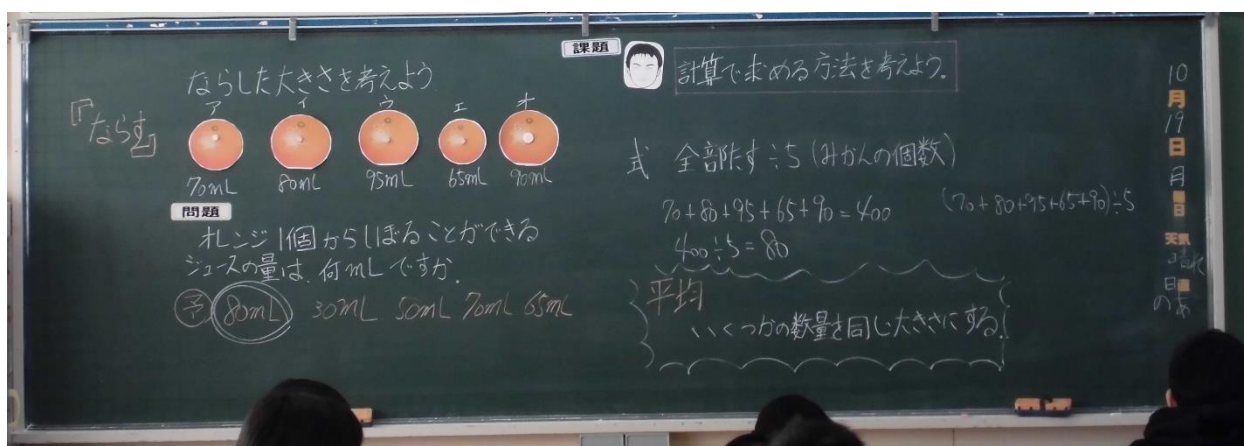 ならした大きさを考えよう
『ならす』
ア イ ウ エ オ
70mL 80mL 95mL 65mL 90mL
問題
オレンジ1個からしぼることができる
ジュースの量は、何mLですか。
予 80mL 30mL 50mL 70mL 65mL
課題
計算で求める方法を考えよう。
式 全部たす÷5(みかんの個数)
70+80+95+65+90=400 (70+80+95+65+90)÷5
400÷5=80
平均
いくつかの数量を同じ大きさにする!
10
月
19
日
月
曜
日
天気
晴れ
日直
のあ